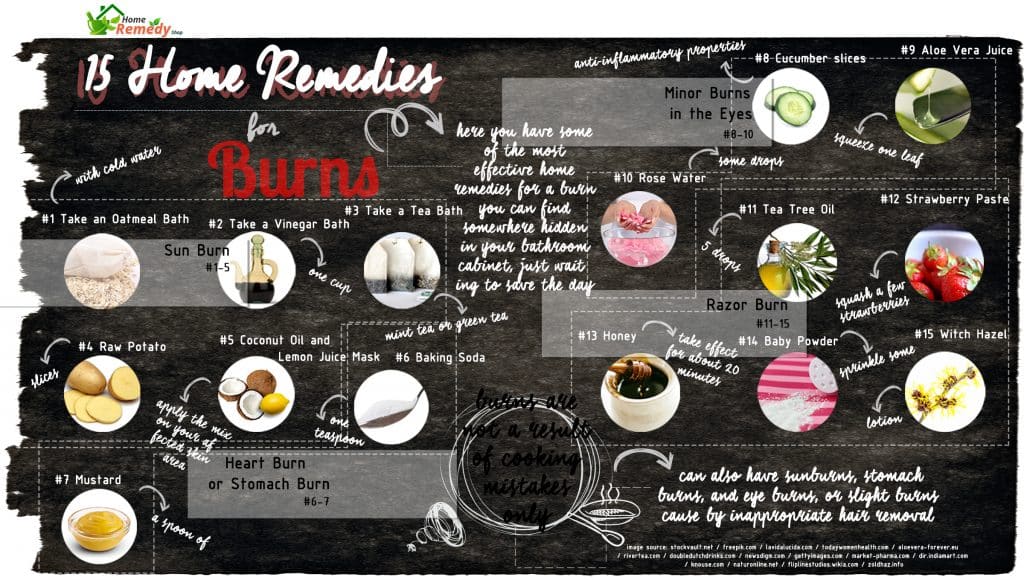 Home
Remedy Shop
15 Home Remedies
for
Burns
here you have some
of the most
effective home
remedies for a burn
you can find
somewhere hidden
in your bathroom
cabinet, just wait
ing to save the day
with cold water
#1 Take an Oatmeal Bath
#2 Take a Vinegar Bath
#3 Take a Tea Bath
Sun Burn
#1-5
one cup
mint tea or green tea
#4 Raw Potato
slices
#5 Coconut Oil and
Lemon Juice Mask
apply the mix
on your af
fected skin
area
#6 Baking Soda
one
teaspoon
Heart Burn
or Stomach Burn
#6-7
#7 Mustard
a spoon of
anti-inflammatory properties
#8 Cucumber slices
#9 Aloe Vera Juice
Minor Burns
in the Eyes
#8-10
squeeze one leaf
some drops
#10 Rose Water
#11 Tea Tree Oil
5 drops
#12 Strawberry Paste
squash a few
strawberries
Razor Burn
#11-15
#13 Honey
take effect
for about 20
minutes
#14 Baby Powder
sprinkle some
#15 Witch Hazel
lotion
burns are
not a results
of cooking
mistakes
only
can also have sunburns, stomach
burns, and eye burns, or slight burns
cause by inappropriate hair removal
image source: stockvault.net / freepik.com / lavidalucida.com / todaywomenhealth.com / aloevera-forever.eu
rivertea.com / doubledutchdrinks.com / newsdigm.com / gettyimages.com / market-pharma.com / dir.indiamart.com
/ knouse.com / naturonline.net / fliplinestudios.wikia.com / zoldhaz.info